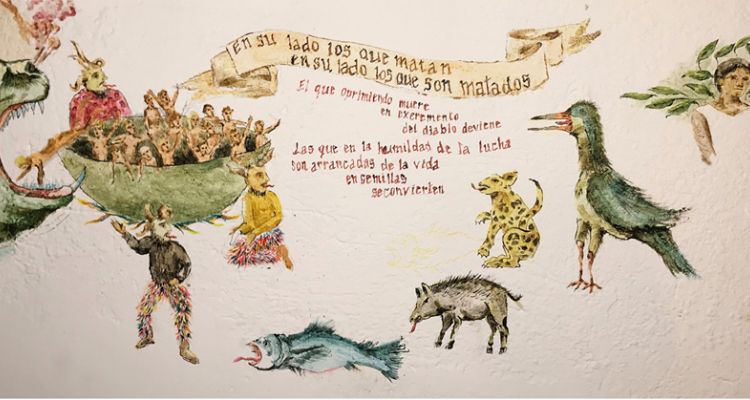 en su lado los que matan
en su lado los que son matados
El que oprimiendo muere
en excremento
del diablo deviene
Las que en la humildad de la lucha
son arrancadas de la vida
en semillas
seconvierten